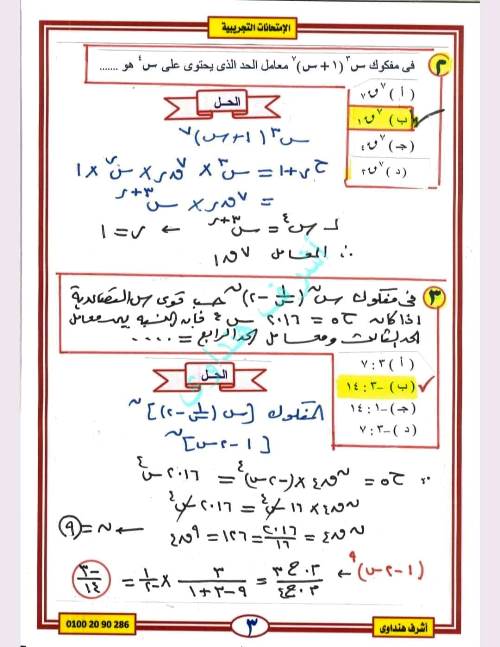 الإمتحانات التجريبية
٢
فى مفكوك س٣ (١ + س)٧ معامل الحد الذى يحتوى على س٤ هو .......
(أ) ٧ق٧
(ب) ٧ق١
(جـ) ٧ق٤
(د) ٧ق٢
الحـل
س٣ (١ + س)٧
ح ر+١ = س٣ × ٧ق ر × س ر × ١
= ٧ق ر × س ٣+ر
س٤ = س ٣+ر ← ر = ١
∴ المعامل ٧ق١
٣
فى مفكوك س ن (١/س - ٢) ن حسب قوى س التصاعدية
اذا كانه ح٥ = ٢٠١٦ س٤ فإنه النسبه بين معامل
الحد الثالث ومعامل الحد الرابع = ....
(أ) ٣ : ٧
(ب) -٣ : ١٤
(جـ) -١ : ١٤
(د) -٣ : ٧
الحـل
المفكوك [س (١/س - ٢)] ن
[١ - ٢س] ن
∵ ح٥ = ن ق٤ × (-٢س)٤ = ٢٠١٦ س٤
ن ق٤ × ١٦ س٤ = ٢٠١٦ س٤
ن ق٤ = ٢٠١٦/١٦ = ١٢٦ = ٩ق٤ ← ن = ٩
(١ - ٢س)٩ ← م.ح٣/م.ح٤ = ٣/(٩-٣+١) × ١/-٢ = -٣/١٤
أشرف هنداوى
٣
0100 20 90 286
أشرف هنداوى